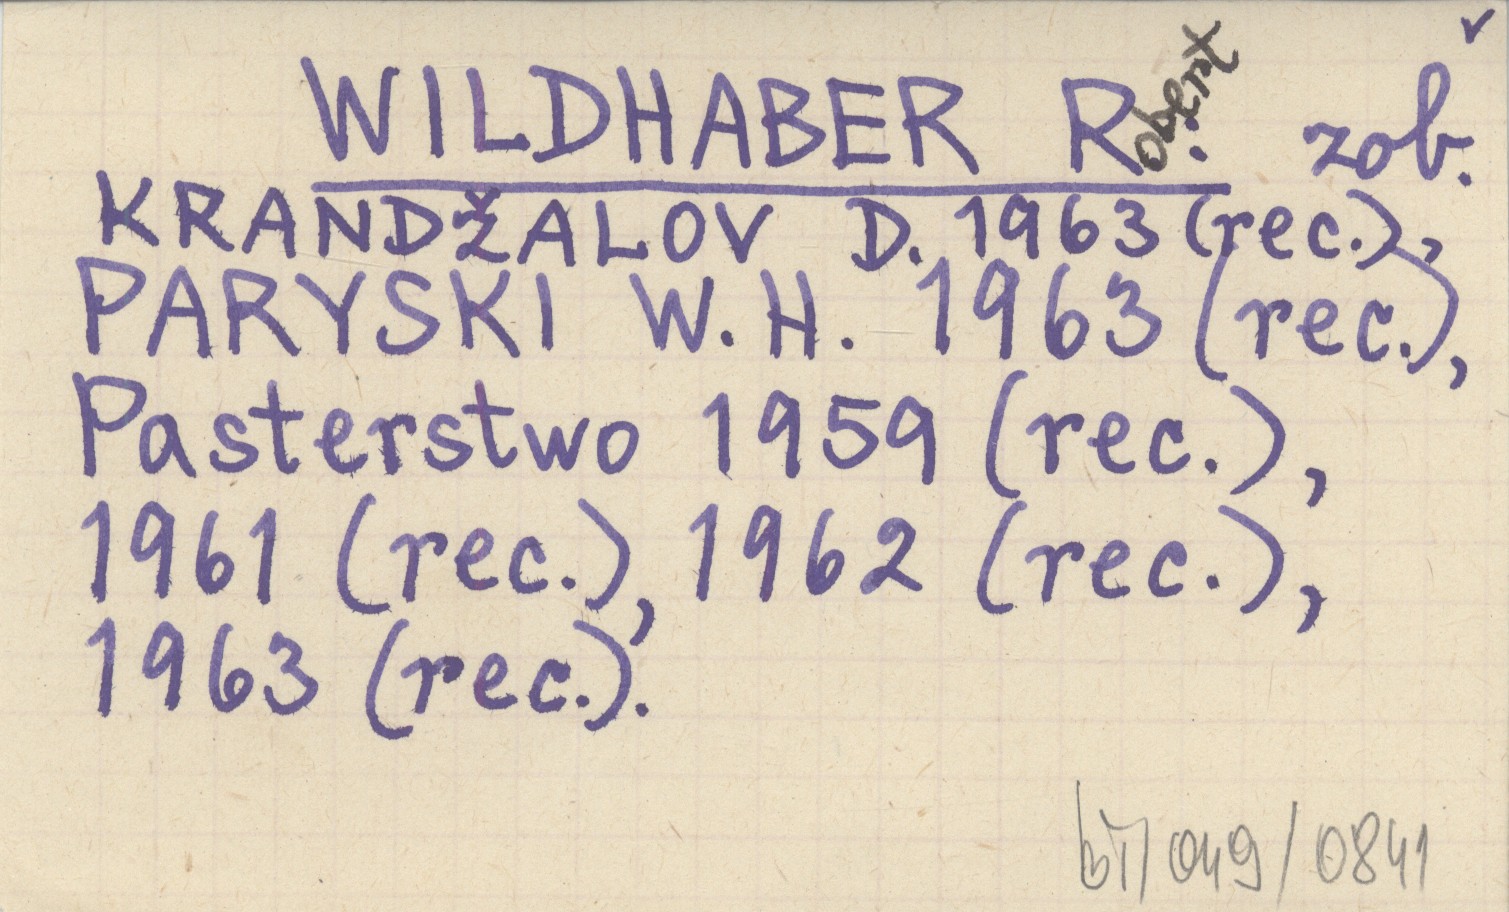 v
WILDHABER R.obert zob.
KRANDŽALOV D. 1963 (rec.),
PARYSKI W.H. 1963 (rec.),
Pasterstwo 1959 (rec.),
1961 (rec.), 1962 (rec.),
1963 (rec.).
049/0841